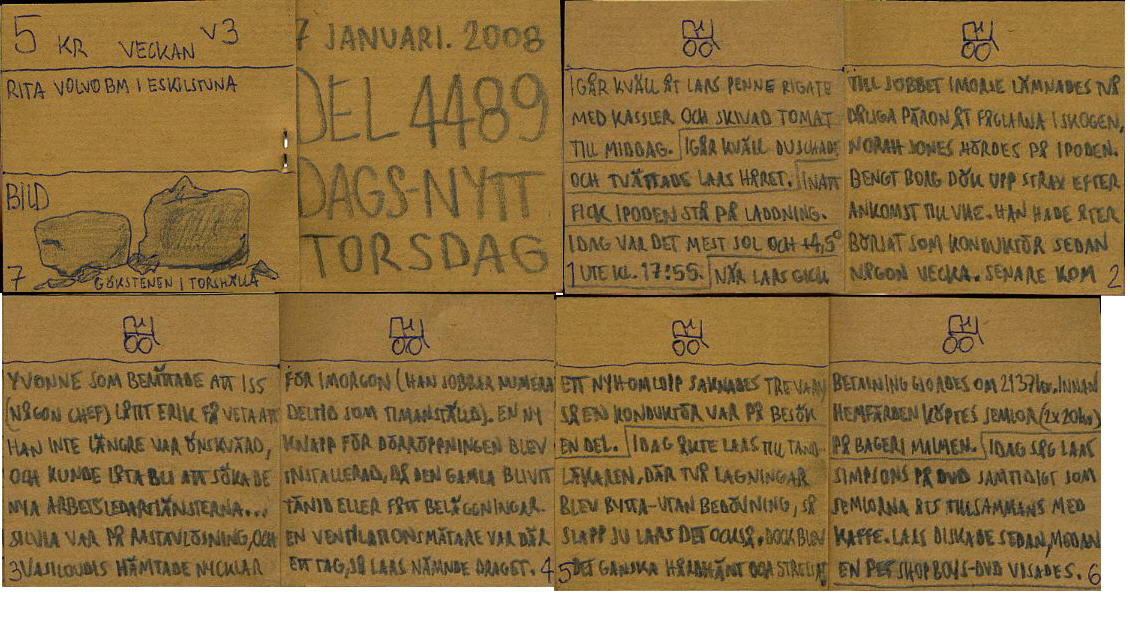 5 KR VECKAN V3
RITA VOLVO BM I ESKILSTUNA
BILD
7 GÖKSTENEN I TORSHÄLLA
7 JANUARI. 2008
DEL 4489
DAGS-NYTT
TORSDAG
IGÅR KVÄLL ÅT LARS PENNE RIGATE
MED KASSLER OCH SKIVAD TOMAT
TILL MIDDAG. IGÅR KVÄLL DUSCHADE
OCH TVÄTTADE LARS HÅRET. INATT
FICK IPODEN STÅ PÅ LADDNING.
IDAG VAR DET MEST SOL OCH +4,5°
1 UTE KL. 17:55. NÄR LARS GICK
TILL JOBBET IMORSE LÄMNADES TVÅ
DÅLIGA PÄRON ÅT FÅGLARNA I SKOGEN,
NORAH JONES HÖRDES PÅ IPODEN.
BENGT BORG DÖK UPP STRAX EFTER
ANKOMST TILL VHE. HAN HADE ÅTER
BÖRJAT SOM KONDUKTÖR SEDAN
NÅGON VECKA. SENARE KOM 2
YVONNE SOM BERÄTTADE ATT ISS
(NÅGON CHEF) LÅTIT ERIK FÅ VETA ATT
HAN INTE LÄNGRE VAR ÖNSKVÄRD,
OCH KUNDE LÅTA BLI ATT SÖKA DE
NYA ARBETSLEDARTJÄNSTERNA...
SILVIA VAR PÅ RASTAVLÖSNING, OCH
3 VASILOUDIS HÄMTADE NICKLAR
FÖR IMORGON (HAN JOBBAR NUMERA
DELTID SOM TIMANSTÄLLD). EN NY
KNAPP FÖR DÖRRÖPPNINGEN BLEV
INSTALLERAD, DÅ DEN GAMLA BLIVIT
TÄNJD ELLER FÅTT BELÄGGNINGAR.
EN VENTILATIONSMÄTARE VAR DÄR
ETT TAG, SÅ LARS NÄMNDE DRAGET. 4
ETT NYH-OMLOPP SAKNADES TRE VARV
SÅ EN KONDUKTÖR VAR PÅ BESÖK
EN DEL. IDAG ÅKTE LARS TILL TAND-
LÄKAREN, DÄR TVÅ LAGNINGAR
BLEV BYTTA-UTAN BEDÖVNING, SÅ
SLAPP JU LARS DET OCKSÅ. DOCK BLEV
5 DET GANSKA HÅRDHÄNT OCH
BETALNING GJORDES OM 2137kr. INNAN
HEMFÄRDEN KÖPTES SEMLOR (2x20kr)
PÅ BAGERI MALMEN. IDAG SÅG LARS
SIMPSONS PÅ DVD SAMTIDIGT SOM
SEMLORNA ÅTS TILLSAMMANS MED
KAFFE. LARS DISKADE SEDAN, MEDAN
EN PET SHOP BOYS-DVD VISADES. 6